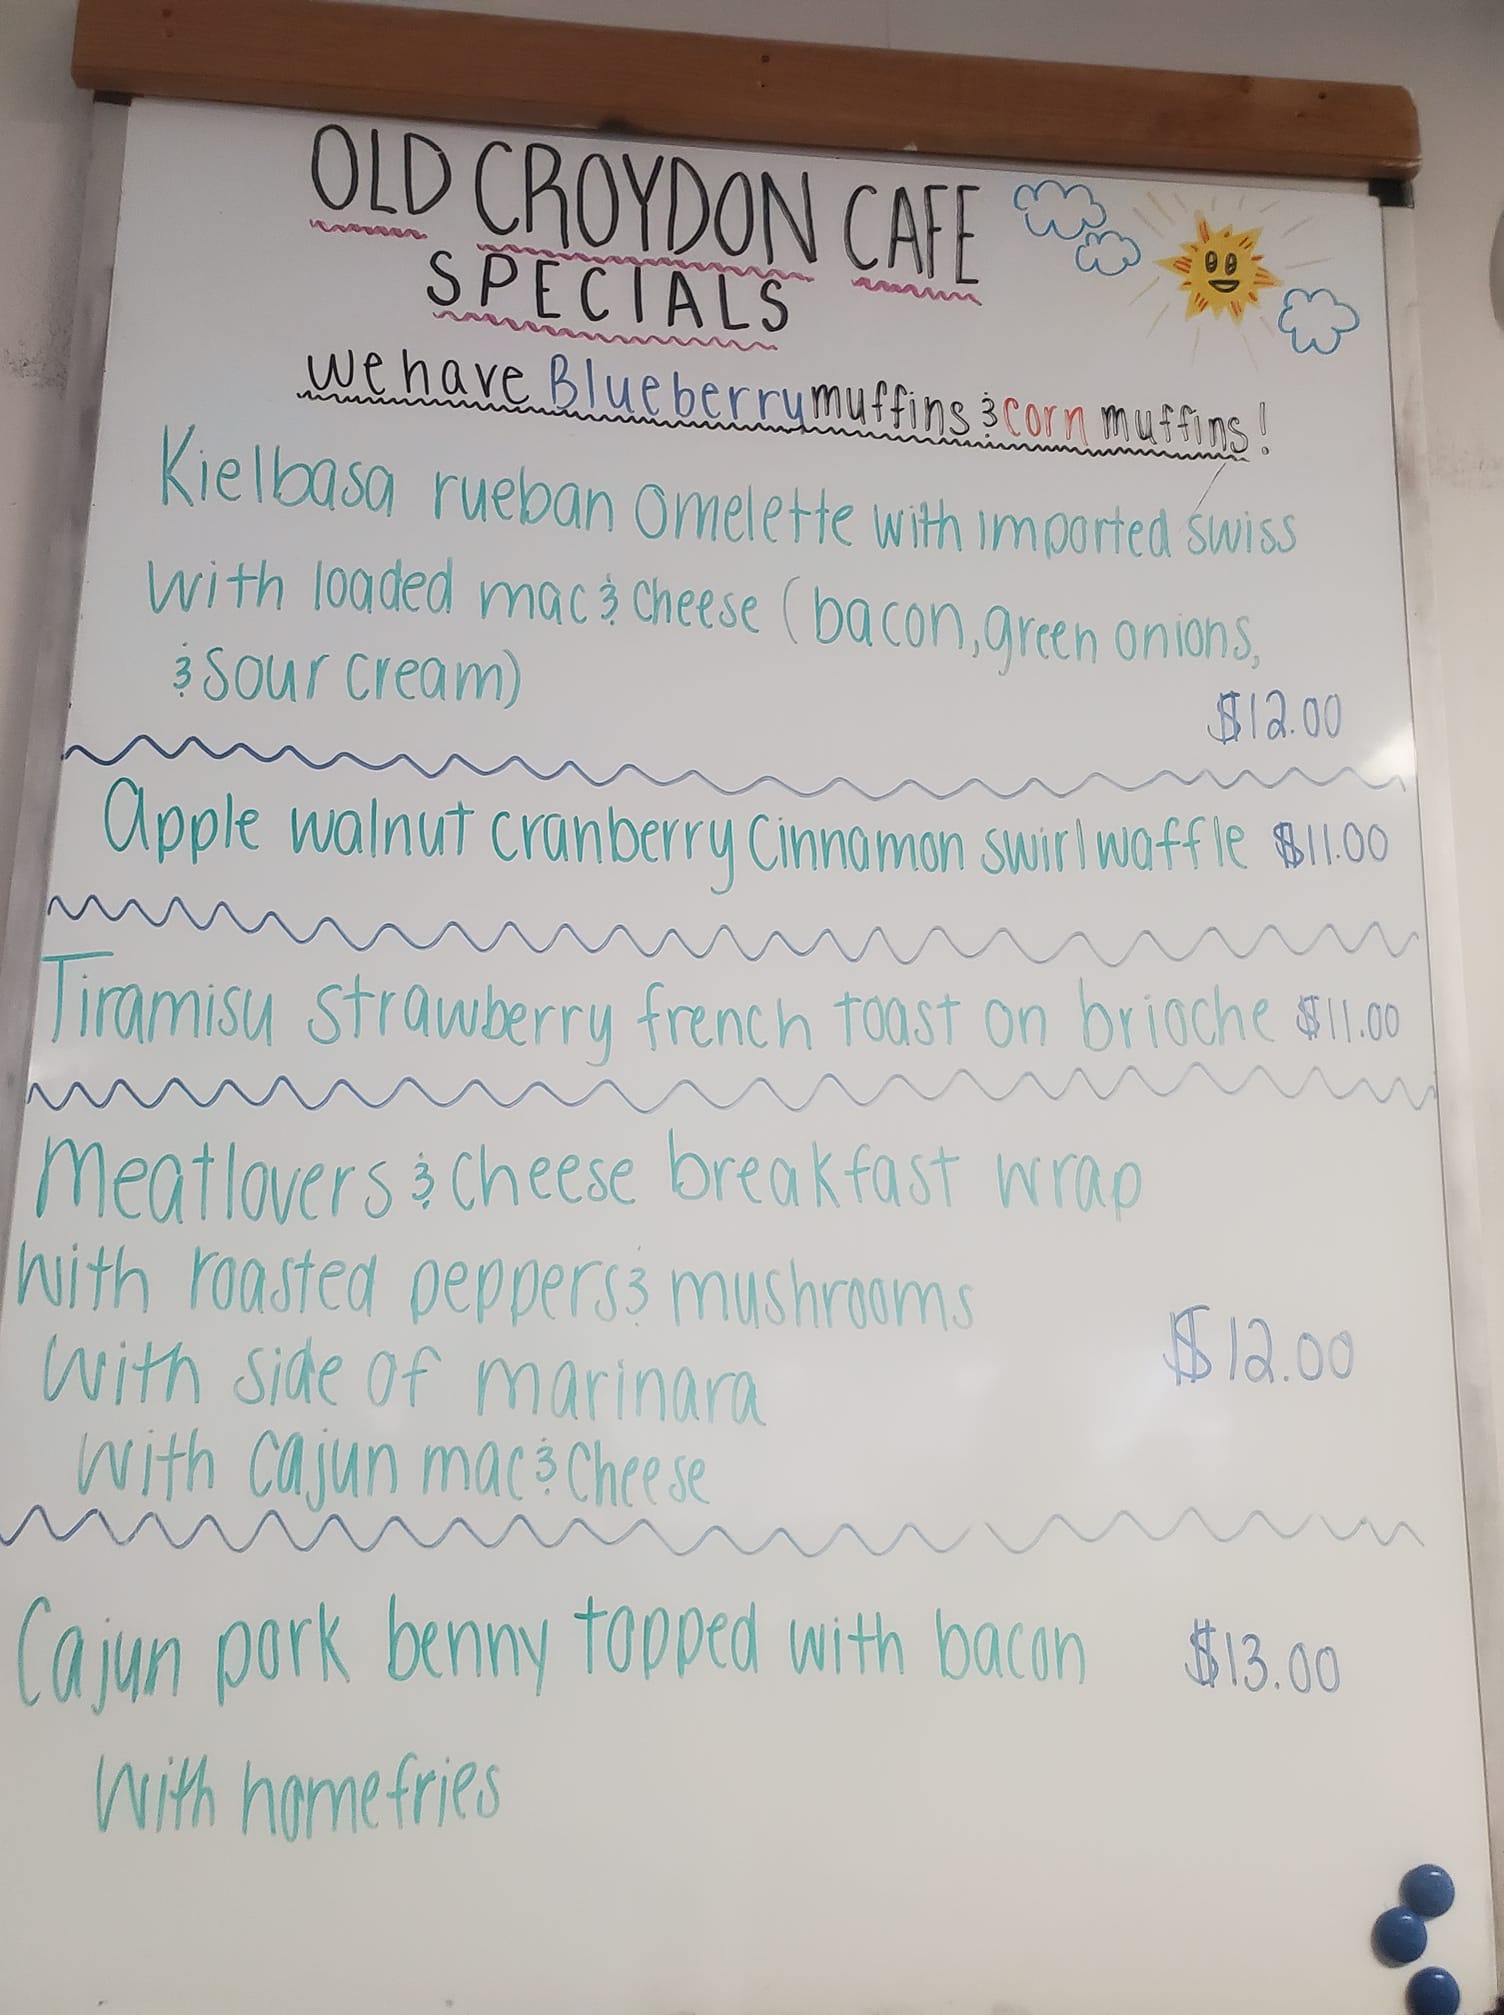 OLD CROYDON CAFE
SPECIALS
We have Blueberry muffins & corn muffins!
Kielbasa rueban omelette with imported swiss
with loaded mac & cheese (bacon, green onions,
& sour cream)
$12.00
Apple walnut cranberry cinnamon swirl waffle $11.00
Tiramisu strawberry french toast on brioche $11.00
Meatlovers & cheese breakfast wrap
with roasted peppers & mushrooms
$12.00
with side of marinara
with cajun mac & cheese
Cajun pork benny topped with bacon $13.00
with homefries